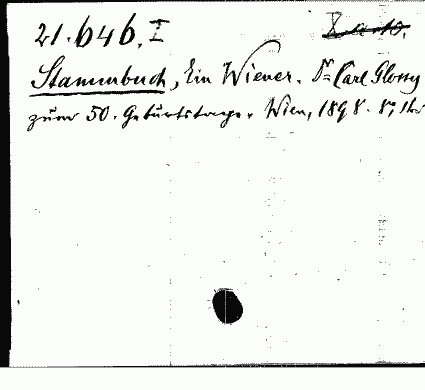 21.646. I
Stammbuch, Ein Wiener. Dr Carl Glossy
zum 50. Geburtstage. Wien, 1898. 8,